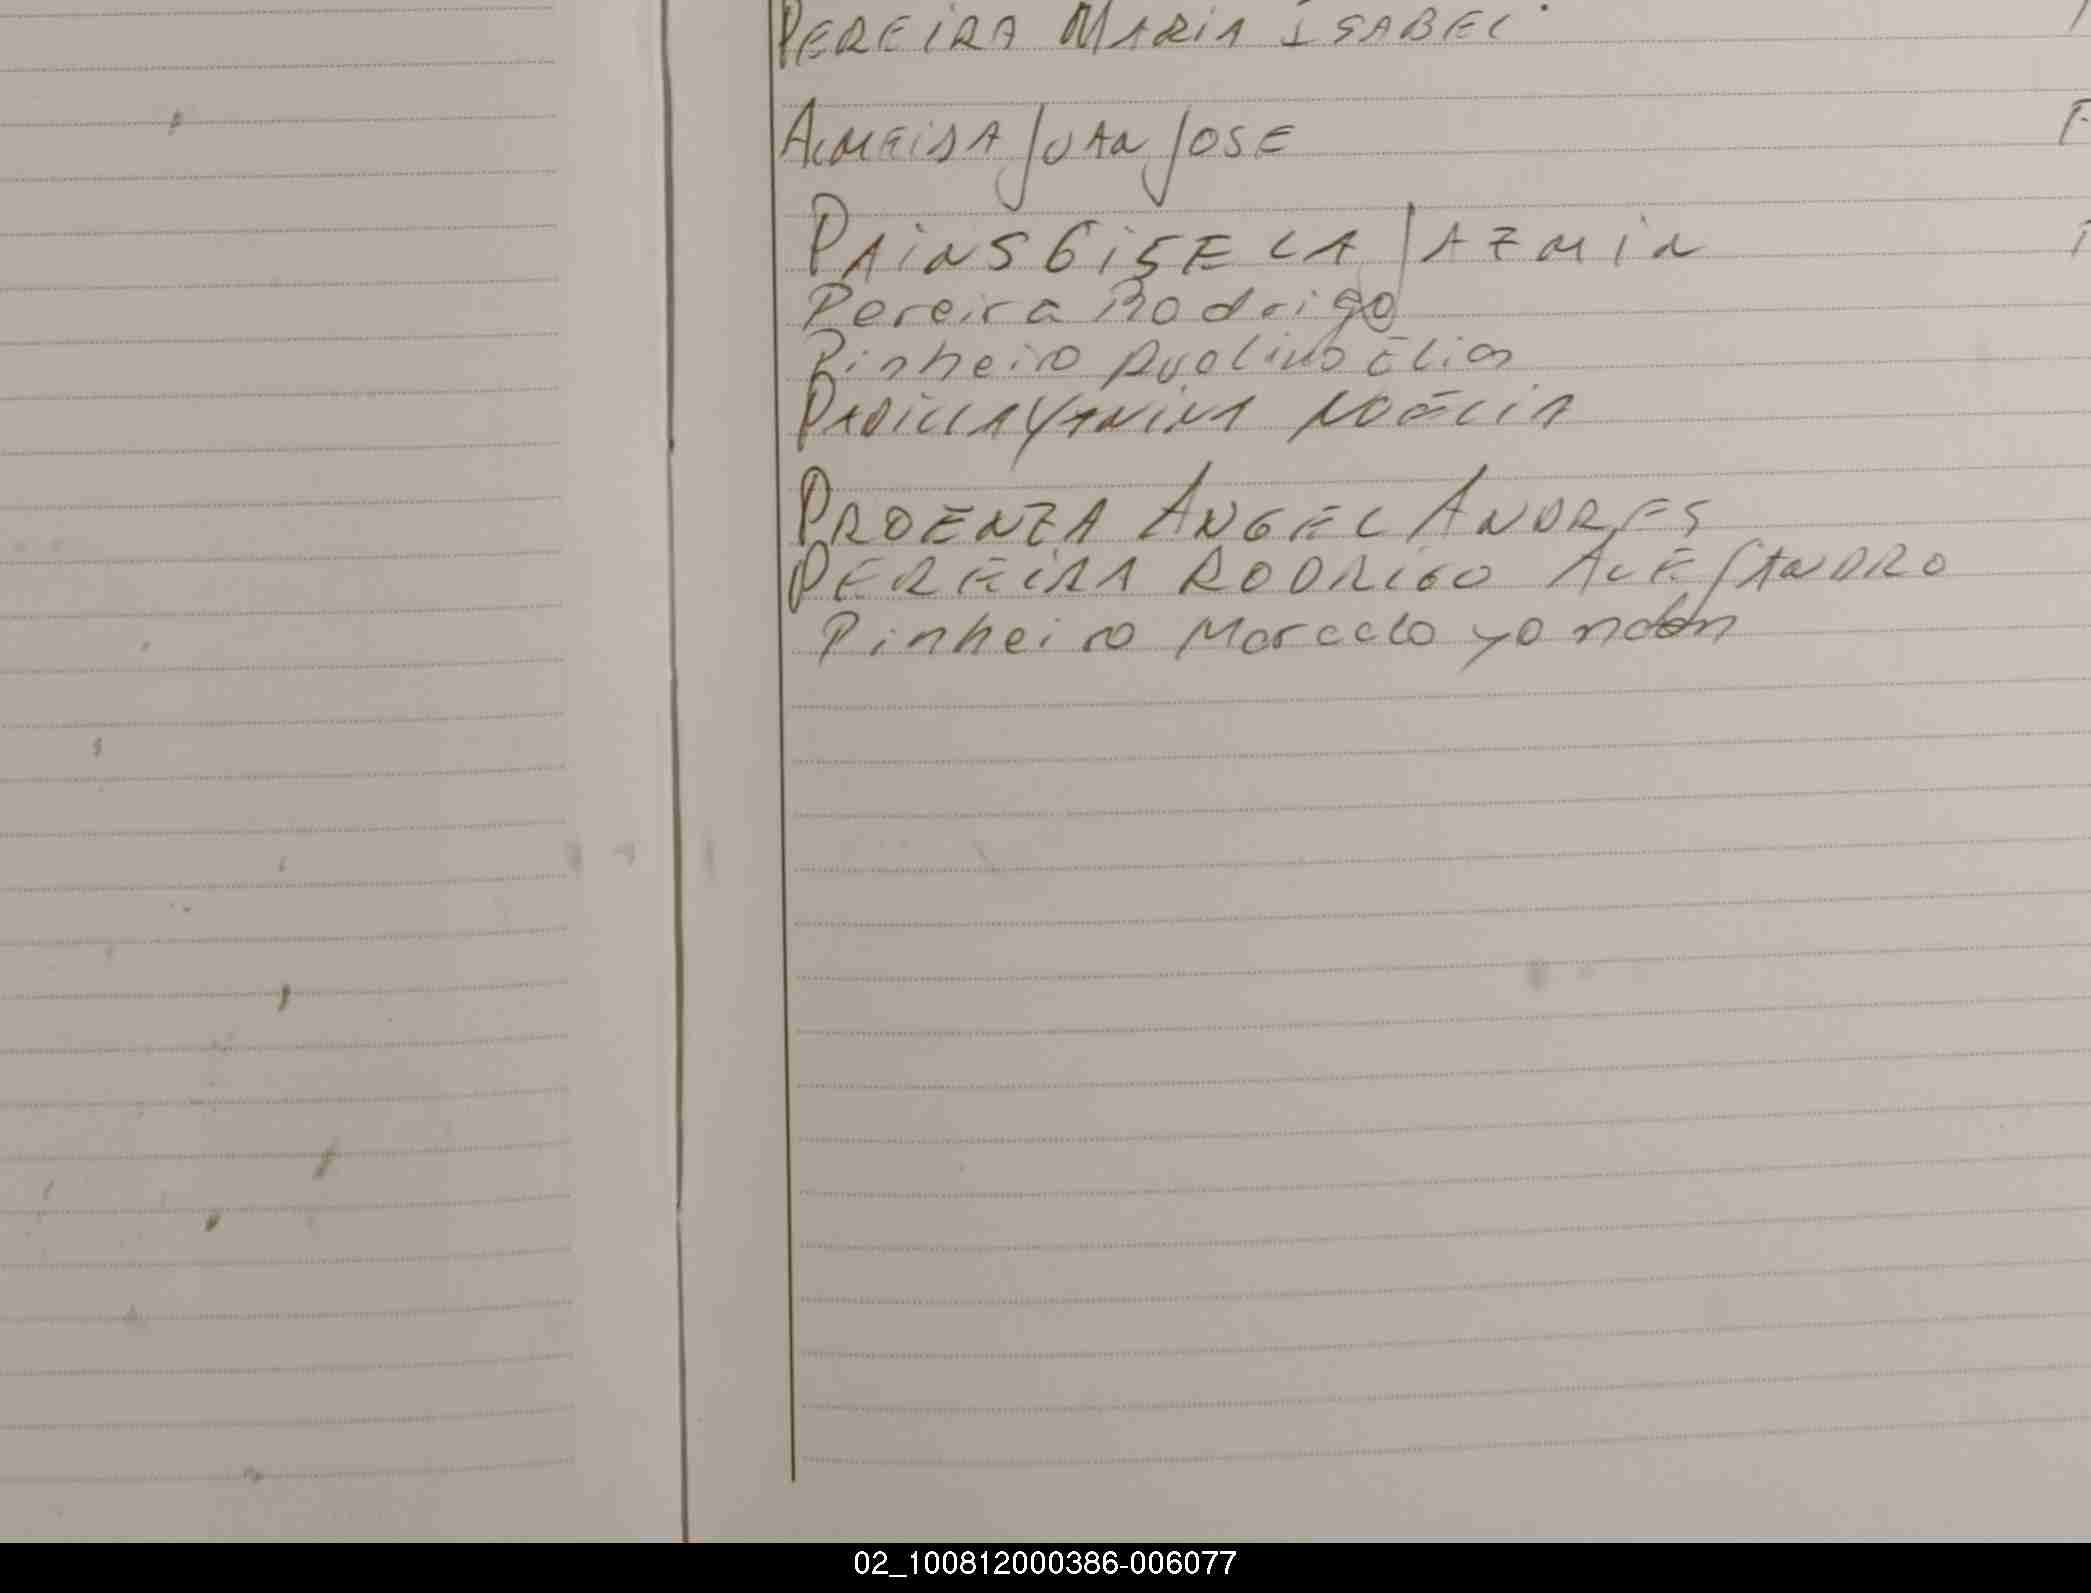 PEREIRA MARIA ISABEL
ALMEIDA JUAN JOSE
PAINS GISELA JAZMIN
Pereira Rodrigo
Pinheiro Avelino Elias
PADILLA YANINA NOELIA
PROENZA ANGEL ANDRES
PEREIRA RODRIGO ALEJANDRO
Pinheiro Marcelo
02_100812000386-006077